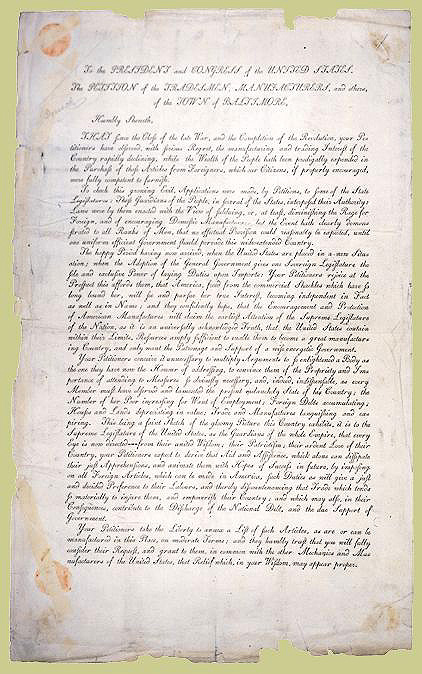 To the PRESIDENT and CONGRESS of the UNITED STATES.
The PETITION of the TRADESMEN, MANUFACTURERS, and others,
of the TOWN of BALTIMORE,
Humbly Sheweth,
THAT since the Close of the late War, and the Completion of the Revolution, your Pe-
titioners have observed, with serious Regret, the manufacturing and trading Interest of the
Country rapidly declining, while the Wealth of the People hath been prodigally expended in
the Purchase of those Articles from Foreigners, which our Citizens, if properly encouraged,
were fully competent to furnish.
To check this growing Evil, Applications were made, by Petitions, to some of the State
Legislatures: These Guardians of the People, in several of the States, interposed their Authority;
Laws were by them enacted with the View of subduing, or, at least, diminishing the Rage for
Foreign, and of encouraging Domestic Manufactures; but the Event hath clearly demon-
strated to all Ranks of Men, that no effectual Provision could reasonably be expected, until
one uniform efficient Government should pervade this wide-extended Country.
The happy Period having now arrived, when the United States are placed in a new Situ-
ation; when the Adoption of the General Government gives one Sovereign Legislature the
sole and exclusive Power of laying Duties upon Imports; Your Petitioners rejoice at the
Prospect this affords them, that America, freed from the commercial Shackles which have so
long bound her, will see and pursue her true Interest, becoming independent in Fact
as well as in Name; and they confidently hope, that the Encouragement and Protection
of American Manufactures will claim the earliest Attention of the Supreme Legislature
of the Nation, as it is an universally acknowledged Truth, that the United States contain
within their Limits, Resources amply sufficient to enable them to become a great manufactur-
ing Country, and only want the Patronage and Support of a wise energetic Government.
Your Petitioners conceive it unnecessary to multiply Arguments to so enlightened a Body as
the one they have now the Honour of addressing, to convince them of the Propriety and Im-
portance of attending to Measures so obviously necessary, and, indeed, indispensible, as every
Member must have observed and lamented the present melancholy State of his Country; the
Number of her Poor increasing for Want of Employment; Foreign Debts accumulating;
Houses and Lands depreciating in value; Trade and Manufactures languishing and ex-
piring. This being a faint Sketch of the gloomy Picture this Country exhibits, it is to the
Supreme Legislature of the United States, as the Guardians of the whole Empire, that every
Eye is now directed—from their united Wisdom, their Patriotism, their ardent Love of their
Country, your Petitioners expect to derive that Aid and Assistance, which alone can dissipate
their just Apprehensions, and animate them with Hopes of Success in future, by imposing
on all Foreign Articles, which can be made in America, such Duties as will give a just
and decided Preference to their Labours, and thereby discountenancing that Trade which tends
so materially to injure them, and impoverish their Country; and which may also, in their
Consequences, contribute to the Discharge of the National Debt, and the due Support of
Government.
Your Petitioners take the Liberty to annex a List of such Articles, as are or can be
manufactured in this Place, on moderate Terms; and they humbly trust that you will fully
consider their Request, and grant to them, in common with the other Mechanics and Ma-
nufacturers of the United States, that Relief which, in your Wisdom, may appear proper.